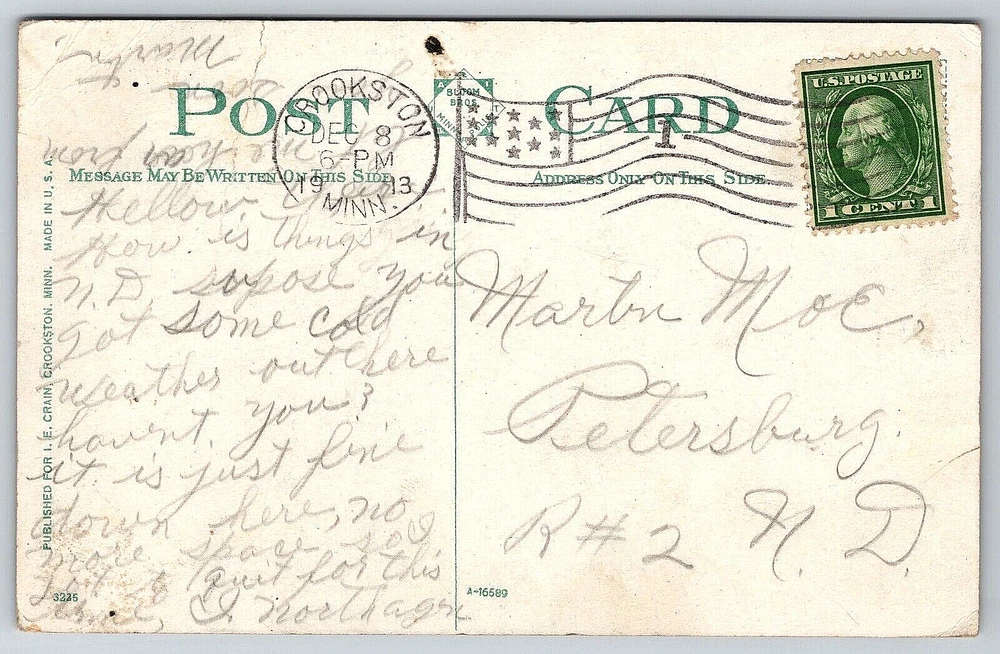 POST CARD
BLOOM
BROS.
CROOKSTON
DEC 8
6-PM
1913
MINN.
1
U.S. POSTAGE
1 CENT 1
MESSAGE MAY BE WRITTEN ON THIS SIDE
ADDRESS ONLY ON THIS SIDE.
Hellow
How is things in
N.D. supose you
got some cold
weather out there
havent you?
it is just fine
down here, no
more space so I
got to quit for this
time, I. Northagn
let me hear from
Martin
Martin Moe,
Petersburg.
R #2 N. D.
PUBLISHED FOR I. E. CRAIN, CROOKSTON, MINN. MADE IN U. S. A.
3235
A-16589